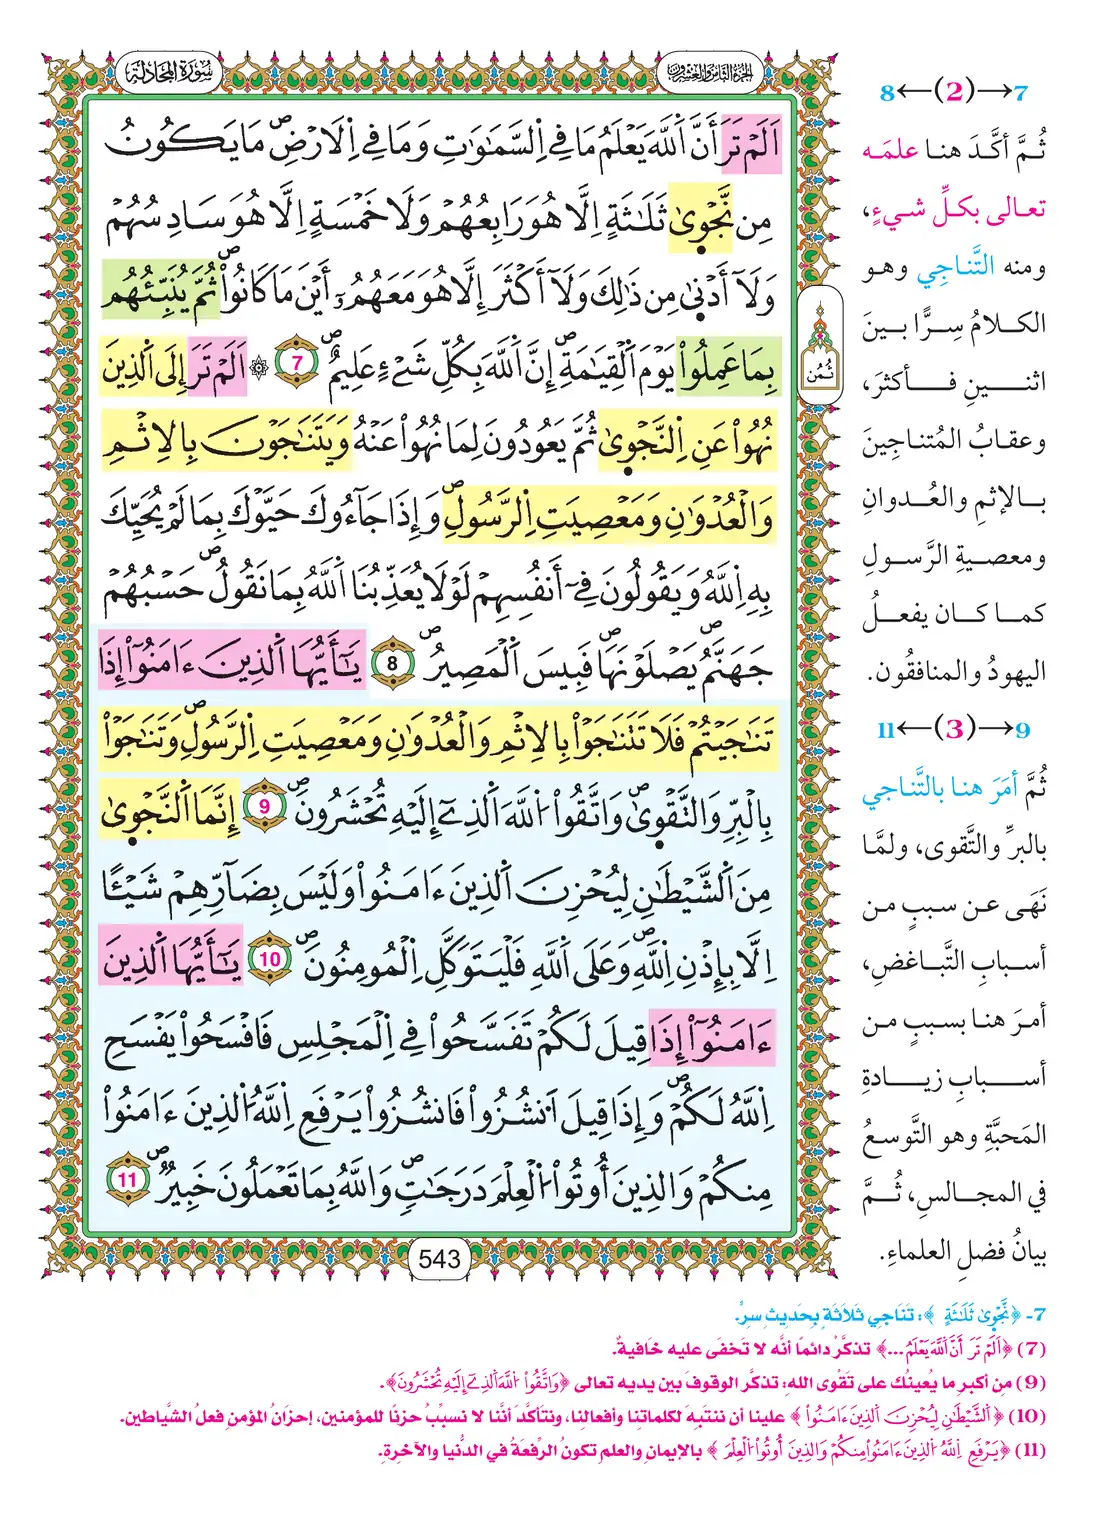 سُورَةُ المُجَادلَة
الجُزءُ الثَّامِنُ وَالعِشْرُون
اَلَمْ تَرَ أَنَّ اَللَّهَ يَعْلَمُ مَا فِي اِلسَّمَٰوَٰتِ وَمَا فِي اِلَارْضِۖ مَا يَكُونُ
مِن نَّجْو۪ىٰ ثَلَٰثَةٍ اِلَّا هُوَ رَابِعُهُمْ وَلَا خَمْسَةٍ اِلَّا هُوَ سَادِسُهُمْ
وَلَآ أَدْن۪ىٰ مِن ذَٰلِكَ وَلَآ أَكْثَرَ إِلَّا هُوَ مَعَهُمُۥٓ أَيْنَ مَا كَانُواْۖ ثُمَّ يُنَبِّئُهُم
بِمَا عَمِلُواْ يَوْمَ اَلْقِيَٰمَةِۖ إِنَّ اَللَّهَ بِكُلِّ شَےْءٍ عَلِيمٌۖ 7 ۞ اَلَمْ تَرَ إِلَى اَلذِينَ
نُهُواْ عَنِ اِلنَّجْو۪ىٰ ثُمَّ يَعُودُونَ لِمَا نُهُواْ عَنْهُ وَيَتَنَٰجَوْنَ بِالِاثْمِ
وَالْعُدْوَٰنِ وَمَعْصِيَتِ اِلرَّسُولِۖ وَإِذَا جَآءُوكَ حَيَّوْكَ بِمَا لَمْ يُحَيِّكَ
بِهِ اِللَّهُ وَيَقُولُونَ فِےٓ أَنفُسِهِمْ لَوْلَا يُعَذِّبُنَا اَللَّهُ بِمَا نَقُولُۖ حَسْبُهُمْ
جَهَنَّمُۖ يَصْلَوْنَهَاۖ فَبِيسَ اَلْمَصِيرُۖ 8 يَٰٓأَيُّهَا اَلذِينَ ءَامَنُوٓاْ إِذَا
تَنَٰجَيْتُمْ فَلَا تَتَنَٰجَوْاْ بِالِاثْمِ وَالْعُدْوَٰنِ وَمَعْصِيَتِ اِلرَّسُولِۖ وَتَنَٰجَوْاْ
بِالْبِرِّ وَالتَّقْو۪ىٰۖ وَاتَّقُواْ اُللَّهَ اَلذِےٓ إِلَيْهِ تُحْشَرُونَۖ 9 إِنَّمَا اَلنَّجْو۪ىٰ
مِنَ اَلشَّيْطَٰنِ لِيُحْزِنَ اَلذِينَ ءَامَنُواْ وَلَيْسَ بِضَآرِّهِمْ شَيْـًٔا
اِلَّا بِإِذْنِ اِللَّهِۖ وَعَلَى اَللَّهِ فَلْيَتَوَكَّلِ اِلْمُومِنُونَۖ 10 يَٰٓأَيُّهَا اَلذِينَ
ءَامَنُوٓاْ إِذَا قِيلَ لَكُمْ تَفَسَّحُواْ فِي اِلْمَجْلِسِ فَافْسَحُواْ يَفْسَحِ
اِللَّهُ لَكُمْۖ وَإِذَا قِيلَ اَنشُزُواْ فَانشُزُواْ يَرْفَعِ اِللَّهُ اُلذِينَ ءَامَنُواْ
مِنكُمْ وَالذِينَ أُوتُواْ اُلْعِلْمَ دَرَجَٰتٖۖ وَاللَّهُ بِمَا تَعْمَلُونَ خَبِيرٌۖ 11
ثُمُن
543
7→(2)←8
ثُمَّ أكَّدَ هنا علمَه
تعالى بكلِّ شيءٍ،
ومنه التَّناجِي وهو
الكلامُ سِرًّا بينَ
اثنينِ فأكثرَ،
وعقابُ المُتناجِينَ
بالإثمِ والعُدوانِ
ومعصيةِ الرَّسولِ
كما كان يفعلُ
اليهودُ والمنافقُون.
9→(3)←11
ثُمَّ أمَرَ هنا بالتَّناجي
بالبرِّ والتَّقوى، ولمَّا
نَهَى عن سببٍ من
أسبابِ التَّباغضِ،
أمرَ هنا بسببٍ من
أسبابِ زيادةِ
المَحبَّةِ وهو التَّوسعُ
في المجالسِ، ثُمَّ
بيانُ فضلِ العلماءِ.
7- ﴿نَّجْو۪ىٰ ثَلَٰثَةٍ﴾: تَنَاجِي ثَلَاثَةٍ بِحَدِيثِ سِرٍّ.
(7) ﴿اَلَمْ تَرَ أَنَّ اَللَّهَ يَعْلَمُ...﴾ تذكَّرْ دائمًا أنَّه لا تَخفَى عليه خَافيةٌ.
(9) من أكبرِ ما يُعينُك على تَقْوى اللهِ: تذكَّر الوقوفَ بين يديه تعالى ﴿وَاتَّقُواْ اُللَّهَ اَلذِےٓ إِلَيْهِ تُحْشَرُونَ﴾.
(10) ﴿اَلشَّيْطَٰنِ لِيُحْزِنَ اَلذِينَ ءَامَنُواْ﴾ علينا أن ننتبِهَ لكلماتنا وأفعالنا، ونتأكَّدَ أنَّنا لا نسبِّبُ حزنًا للمؤمنين، إحزانُ المؤمنِ فعلُ الشَّياطين.
(11) ﴿يَرْفَعِ اِللَّهُ اُلذِينَ ءَامَنُواْ مِنكُمْ وَالذِينَ أُوتُواْ اُلْعِلْمَ﴾ بالإيمانِ والعلمِ تكونُ الرِّفعَةُ في الدُّنيا والآخرةِ.